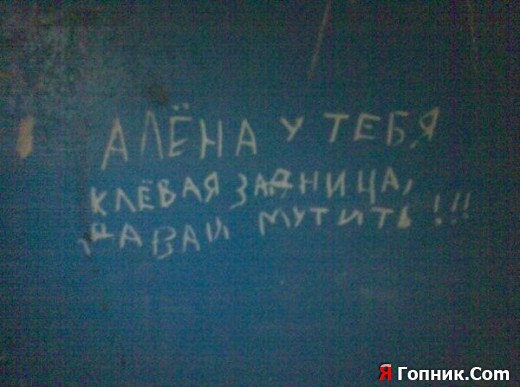 АЛЁНА У ТЕБЯ
КЛЁВАЯ ЗАДНИЦА,
ДАВАЙ МУТИТЬ!!!
Я Гопник.Com